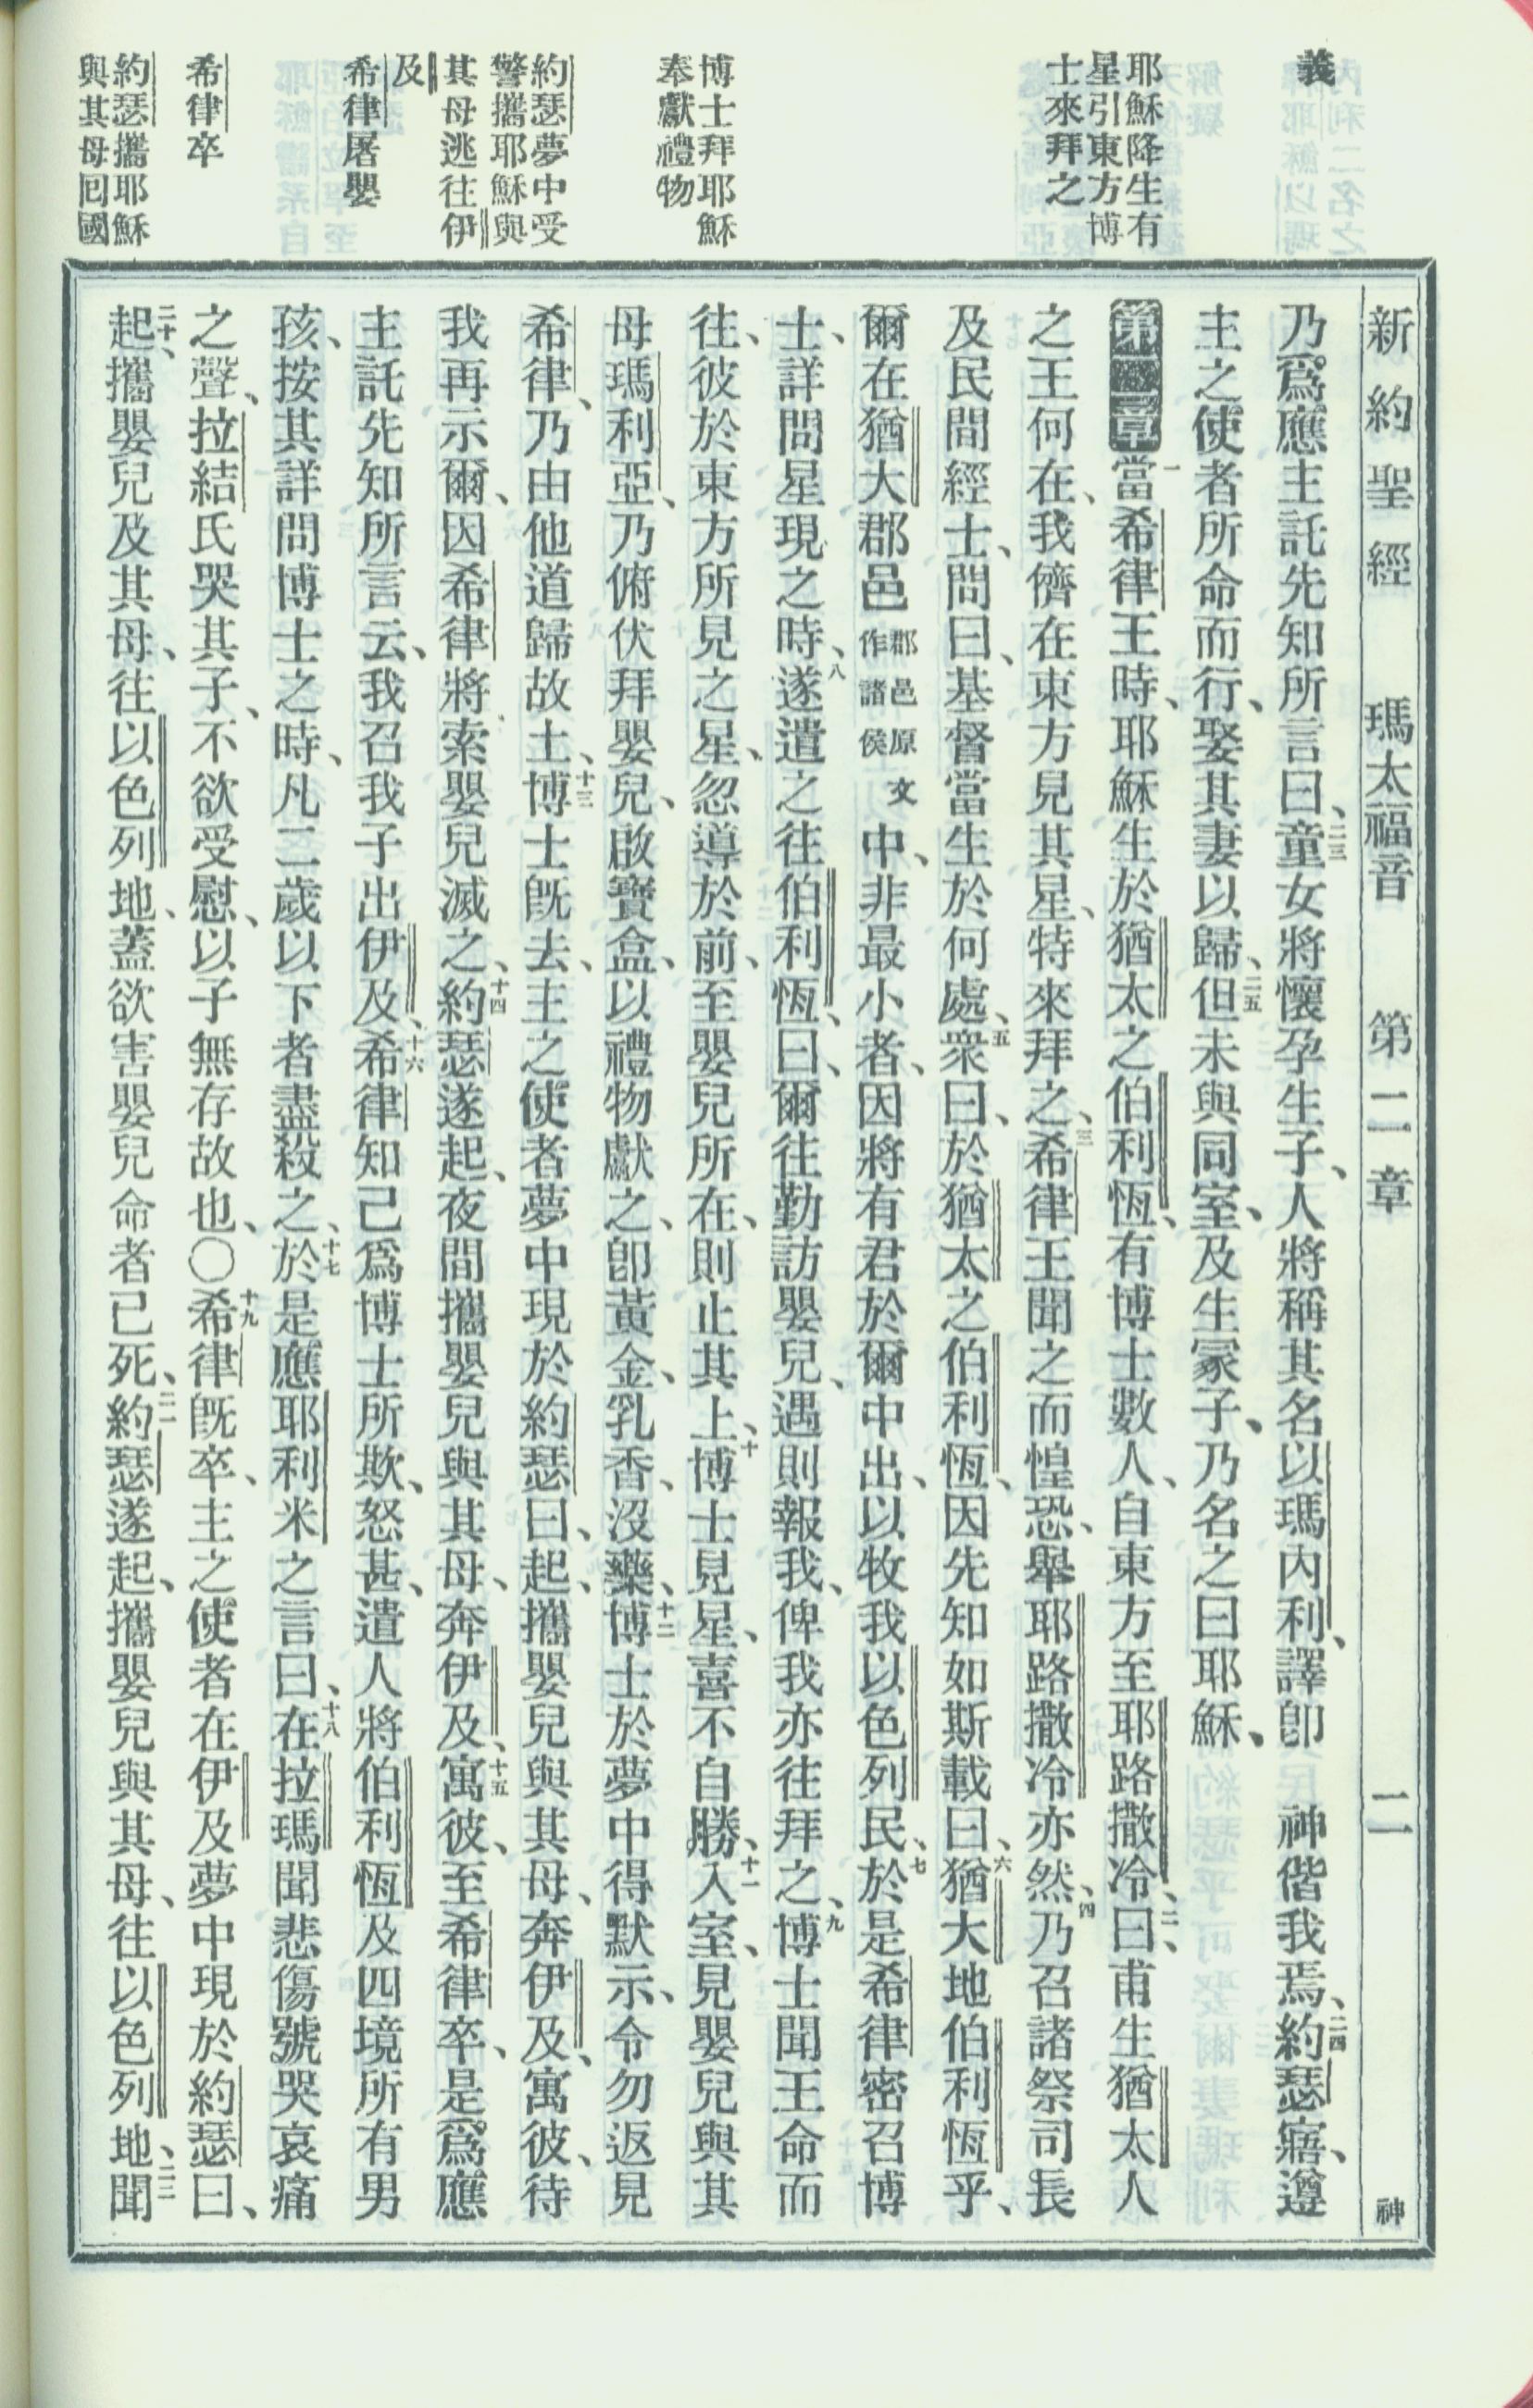 義
耶穌降生有
星引東方博
士來拜之
博士拜耶穌
奉獻禮物
約瑟夢中受
警攜耶穌與
其母逃往伊
及
希律屠嬰
希律卒
約瑟攜耶穌
與其母囘國
新約聖經 瑪太福音 第二章 二 神
乃爲應主託先知所言曰、二三童女將懷孕生子、人將稱其名以瑪內利、譯卽 神偕我焉、二四約瑟寤、遵
主之使者所命而行、娶其妻以歸、二五但未與同室、及生冢子、乃名之曰耶穌、
第二章 一當希律王時、耶穌生於猶太之伯利恆、有博士數人、自東方至耶路撒冷、二曰、甫生猶太人
之王何在、我儕在東方見其星、特來拜之、三希律王聞之而惶恐、舉耶路撒冷亦然、四乃召諸祭司長
及民間經士、問曰、基督當生於何處、五衆曰、於猶太之伯利恆、因先知如斯載曰、六猶大地伯利恆乎、
爾在猶大郡邑郡邑原文作諸侯中、非最小者、因將有君於爾中出、以牧我以色列民、七於是希律密召博
士、詳問星現之時、八遂遣之往伯利恆、曰、爾往勤訪嬰兒、遇則報我、俾我亦往拜之、九博士聞王命而
往、彼於東方所見之星、忽導於前、至嬰兒所在、則止其上、十博士見星、喜不自勝、十一入室、見嬰兒與其
母瑪利亞、乃俯伏拜嬰兒、啟寶盒、以禮物獻之、卽黃金、乳香、沒藥、十二博士於夢中得默示、令勿返見
希律、乃由他道歸故土、十三博士旣去、主之使者夢中現於約瑟曰、起、攜嬰兒與其母、奔伊及、寓彼、待
我再示爾、因希律將索嬰兒滅之、十四約瑟遂起、夜間攜嬰兒與其母、奔伊及、十五寓彼、至希律卒、是爲應
主託先知所言云、我召我子出伊及、十六希律知己爲博士所欺、怒甚、遣人將伯利恆及四境所有男
孩、按其詳問博士之時、凡二歲以下者盡殺之、十七於是應耶利米之言曰、十八在拉瑪聞悲傷號哭哀痛
之聲、拉結氏哭其子、不欲受慰、以子無存故也、〇十九希律旣卒、主之使者在伊及夢中現於約瑟曰、
二十、起攜嬰兒及其母、往以色列地、蓋欲害嬰兒命者已死、二一約瑟遂起、攜嬰兒與其母、往以色列地、二二聞